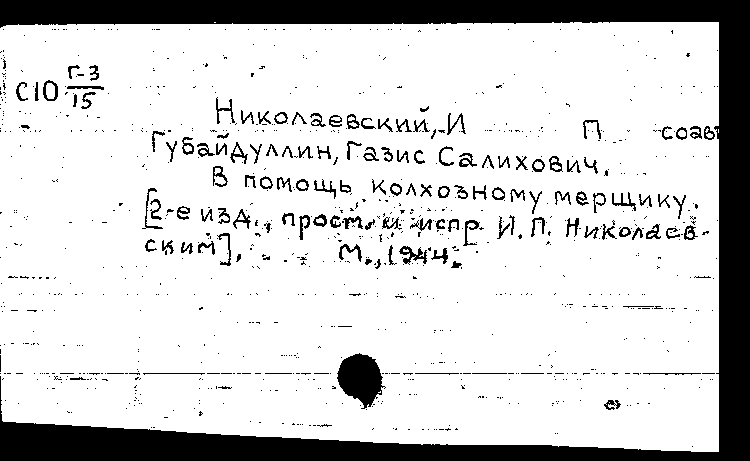 С10 Г-3/15
Николаевский, И П соавт
Губайдуллин, Газис Салихович.
В помощь колхозному мерщику.
[2-е изд., прост. и испр. И. П. Николаев-
ским]. М., 1944.